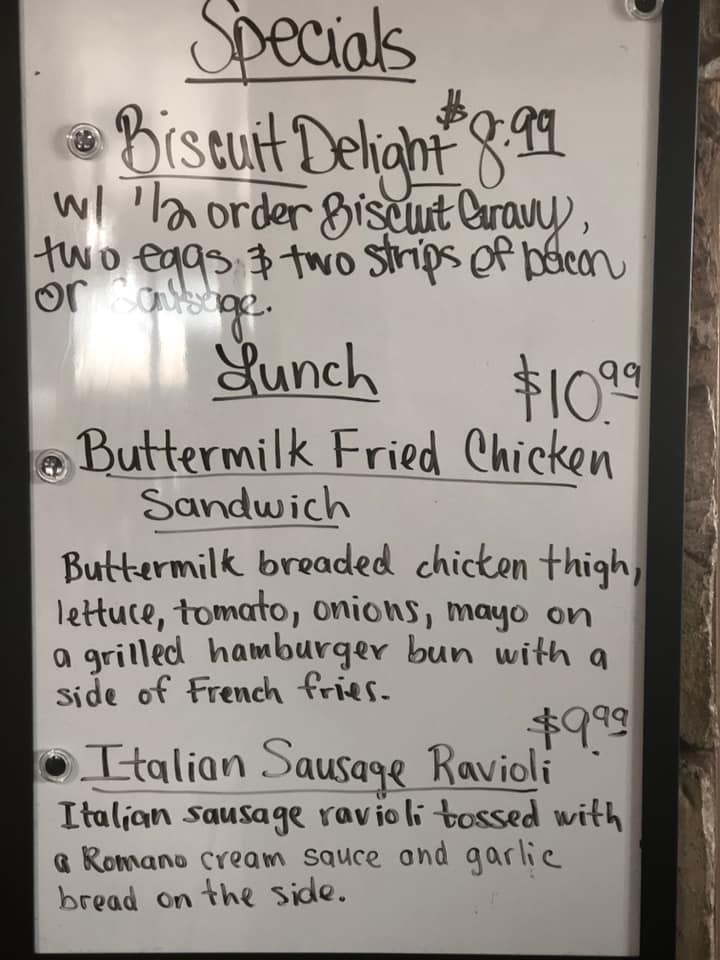 Specials
Biscuit Delight $8.99
w/ 1/2 order Biscuit Gravy,
two eggs & two strips of bacon
or Sausage.
Lunch $10.99
Buttermilk Fried Chicken
Sandwich
Buttermilk breaded chicken thigh,
lettuce, tomato, onions, mayo on
a grilled hamburger bun with a
side of French fries.
$9.99
Italian Sausage Ravioli
Italian sausage ravioli tossed with
a Romano cream sauce and garlic
bread on the side.